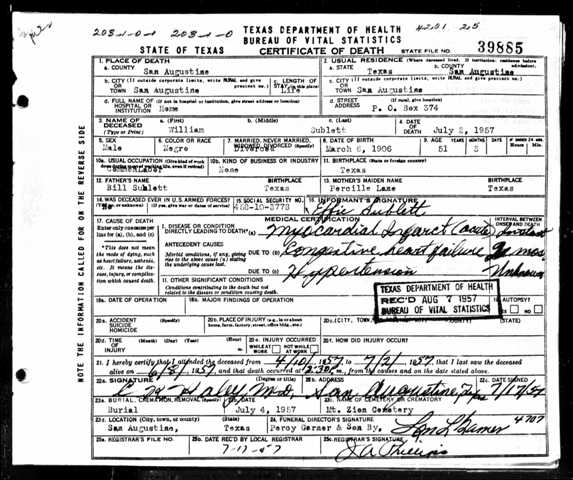 2031-0-1 203-1-0 4201 25
TEXAS DEPARTMENT OF HEALTH
BUREAU OF VITAL STATISTICS
STATE OF TEXAS CERTIFICATE OF DEATH STATE FILE NO. 39885
1. PLACE OF DEATH 2. USUAL RESIDENCE (Where deceased lived. If institution: residence before admission)
a. COUNTY San Augustine a. STATE Texas b. COUNTY San Augustine
b. CITY (If outside corporate limits, write RURAL and give precinct no.) OR TOWN San Augustine c. LENGTH OF STAY (in this place) Life c. CITY (If outside corporate limits, write RURAL and give precinct no.) OR TOWN San Augustine
d. FULL NAME OF (If not in hospital or institution, give street address or location) HOSPITAL OR INSTITUTION Home d. STREET ADDRESS (If rural, give location) P. O. Box 374
3. NAME OF DECEASED (Type or Print) a. (First) William b. (Middle) c. (Last) Sublett 4. DATE OF DEATH July 2, 1957
5. SEX Male 6. COLOR OR RACE Negro 7. MARRIED, NEVER MARRIED, WIDOWED, DIVORCED (Specify) Divorced 8. DATE OF BIRTH March 6, 1906 9. AGE YEARS 51 MONTHS 3 DAYS
10a. USUAL OCCUPATION (Give kind of work done during most of working life, even if retired) Common Labor 10b. KIND OF BUSINESS OR INDUSTRY None 11. BIRTHPLACE (State or foreign country) Texas
12. FATHER'S NAME Bill Sublett Texas 13. MOTHER'S MAIDEN NAME Percille Lane Texas
14. WAS DECEASED EVER IN U.S. ARMED FORCES? (Yes, no, or unknown) (If yes, give war or dates of service) No 15. SOCIAL SECURITY NO. 16. INFORMANT'S SIGNATURE Effie Sublett
17. CAUSE OF DEATH MEDICAL CERTIFICATION INTERVAL BETWEEN ONSET AND DEATH
Enter only one cause per line for (a), (b), and (c) I. DISEASE OR CONDITION DIRECTLY LEADING TO DEATH* (a) Myocardial Infarct (acute)
*This does not mean the mode of dying, such as heart failure, asthenia, etc. It means the disease, injury, or complication which caused death.
ANTECEDENT CAUSES Morbid conditions, if any, giving rise to the above cause (a) stating the underlying cause last. DUE TO (b) Congestive heart failure mos
DUE TO (c) Hypertension Unknown
II. OTHER SIGNIFICANT CONDITIONS Conditions contributing to the death but not related to the disease or condition causing death.
TEXAS DEPARTMENT OF HEALTH
REC'D AUG 7 1957
BUREAU OF VITAL STATISTICS
18a. DATE OF OPERATION 18b. MAJOR FINDINGS OF OPERATION AUTOPSY? YES NO
20a. ACCIDENT SUICIDE HOMICIDE 20b. PLACE OF INJURY (e.g., in or about home, farm, factory, street, office bldg., etc.) 20c. (CITY, TOWN,
20d. TIME OF INJURY (Month) (Day) (Year) (Hour) 20e. INJURY OCCURRED WHILE AT WORK NOT WHILE AT WORK 20f. HOW DID INJURY OCCUR?
21. I hereby certify that I attended the deceased from 4/10/1957 to 7/2/1957 that I last saw the deceased
alive on 6/8/1957, and that death occurred at 2:30P m., from the causes and on the date stated above.
22a. SIGNATURE C. W. Haley M.D. (Degree or title) 22b. ADDRESS San Augustine, Texas 22c. DATE SIGNED 7/17/57
23a. BURIAL, CREMATION, REMOVAL (Specify) Burial 23b. DATE July 4, 1957 23c. NAME OF CEMETERY OR CREMATORY Mt. Zion Cemetery
23d. LOCATION (City, town, or county) (State) San Augustine, Texas 24. FUNERAL DIRECTOR'S SIGNATURE Percy Garner & Son By. 4707
25a. REGISTRAR'S FILE NO. 25b. DATE REC'D BY LOCAL REGISTRAR 7-17-57 25c. REGISTRAR'S SIGNATURE J A Phillips
NOTE THE INFORMATION CALLED FOR ON THE REVERSE SIDE